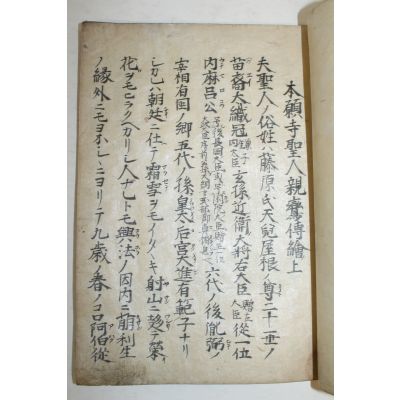 本願寺聖人親鸞傳繪上
夫聖人ノ俗姓ハ藤原氏天兒屋根ノ尊二十一世ノ
苗裔大織冠鎌子内大臣玄孫近衛大將右大臣贈左大臣從一位
内麻呂公六代ノ後胤弼ノ
宰相有国ノ卿五代ノ後皇太后宮大進有範ノ子ナリ
シカレハ朝廷ニ仕テ霜雪ヲモ射山ニ趍テ榮
花ヲモヒラクヘカリシ人ナレトモ興法ノ因内ニ萠利生
ノ縁外ニモヨホシヽニヨリテ九歳ノ春ノコロ阿伯從